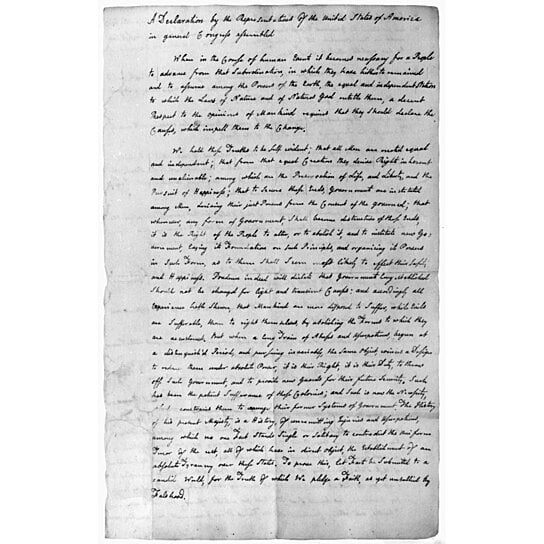 A Declaration by the Representatives of the United States of America
in general Congress assembled
When in the Course of human Event it becomes necessary for a People
to advance from that Subordination, in which they have hitherto remained
and to assume among the Powers of the Earth, the equal and independent Station
to which the Laws of Nature and of Natures God entitle them, a decent
Respect to the opinions of Mankind requires that they Should declare the
Causes, which impell them to the Change.
We hold these Truths to be Self evident; that all Men are created equal
and independent; that from that equal Creation they derive Rights inherent
and unalienable; among which are the Preservation of Life, and Liberty, and the
Pursuit of Happiness; that to Secure these Ends, Governments are instituted
among Men, deriving their just Powers from the Consent of the governed; that
whenever, any form of Government, Shall become destructive of these Ends,
it is the Right of the People to alter, or to abolish it, and to institute new Go-
vernment, laying its Foundation on Such Principles, and organizing its Powers
in Such Form, as to them Shall Seem most likely to effect their Safety
and Happiness. Prudence indeed will dictate that Governments long established
Should not be changed for light and transient Causes: and accordingly all
Experience hath Shewn, that Mankind are more disposed to Suffer, while Evils
are Sufferable, than to right themselves, by abolishing the Forms to which they
are accustomed. But when a long Train of Abuses and Usurpations, begun at
a distinguish'd Period, and pursuing invariably, the Same Object, evinces a Design
to reduce them under absolute Power, it is their Right, it is their Duty, to throw
off Such Government, and to provide new Guards for their future Security. Such
has been the patient Sufferance of these Colonies; and Such is now the Necessity,
which constrains them to expunge their former Systems of Government. The History
of his present Majesty, is a History, of unremitting Injuries and Usurpations,
among which no one Fact Stands Single or Solitary to contradict the Uniform
Tenor of the rest, all of which have in direct object, the Establishment of an
absolute Tyranny over these States. To prove this, let Facts be Submitted to a
candid World, for the Truth of which We pledge a Faith, as yet unsullied by
Falshood.